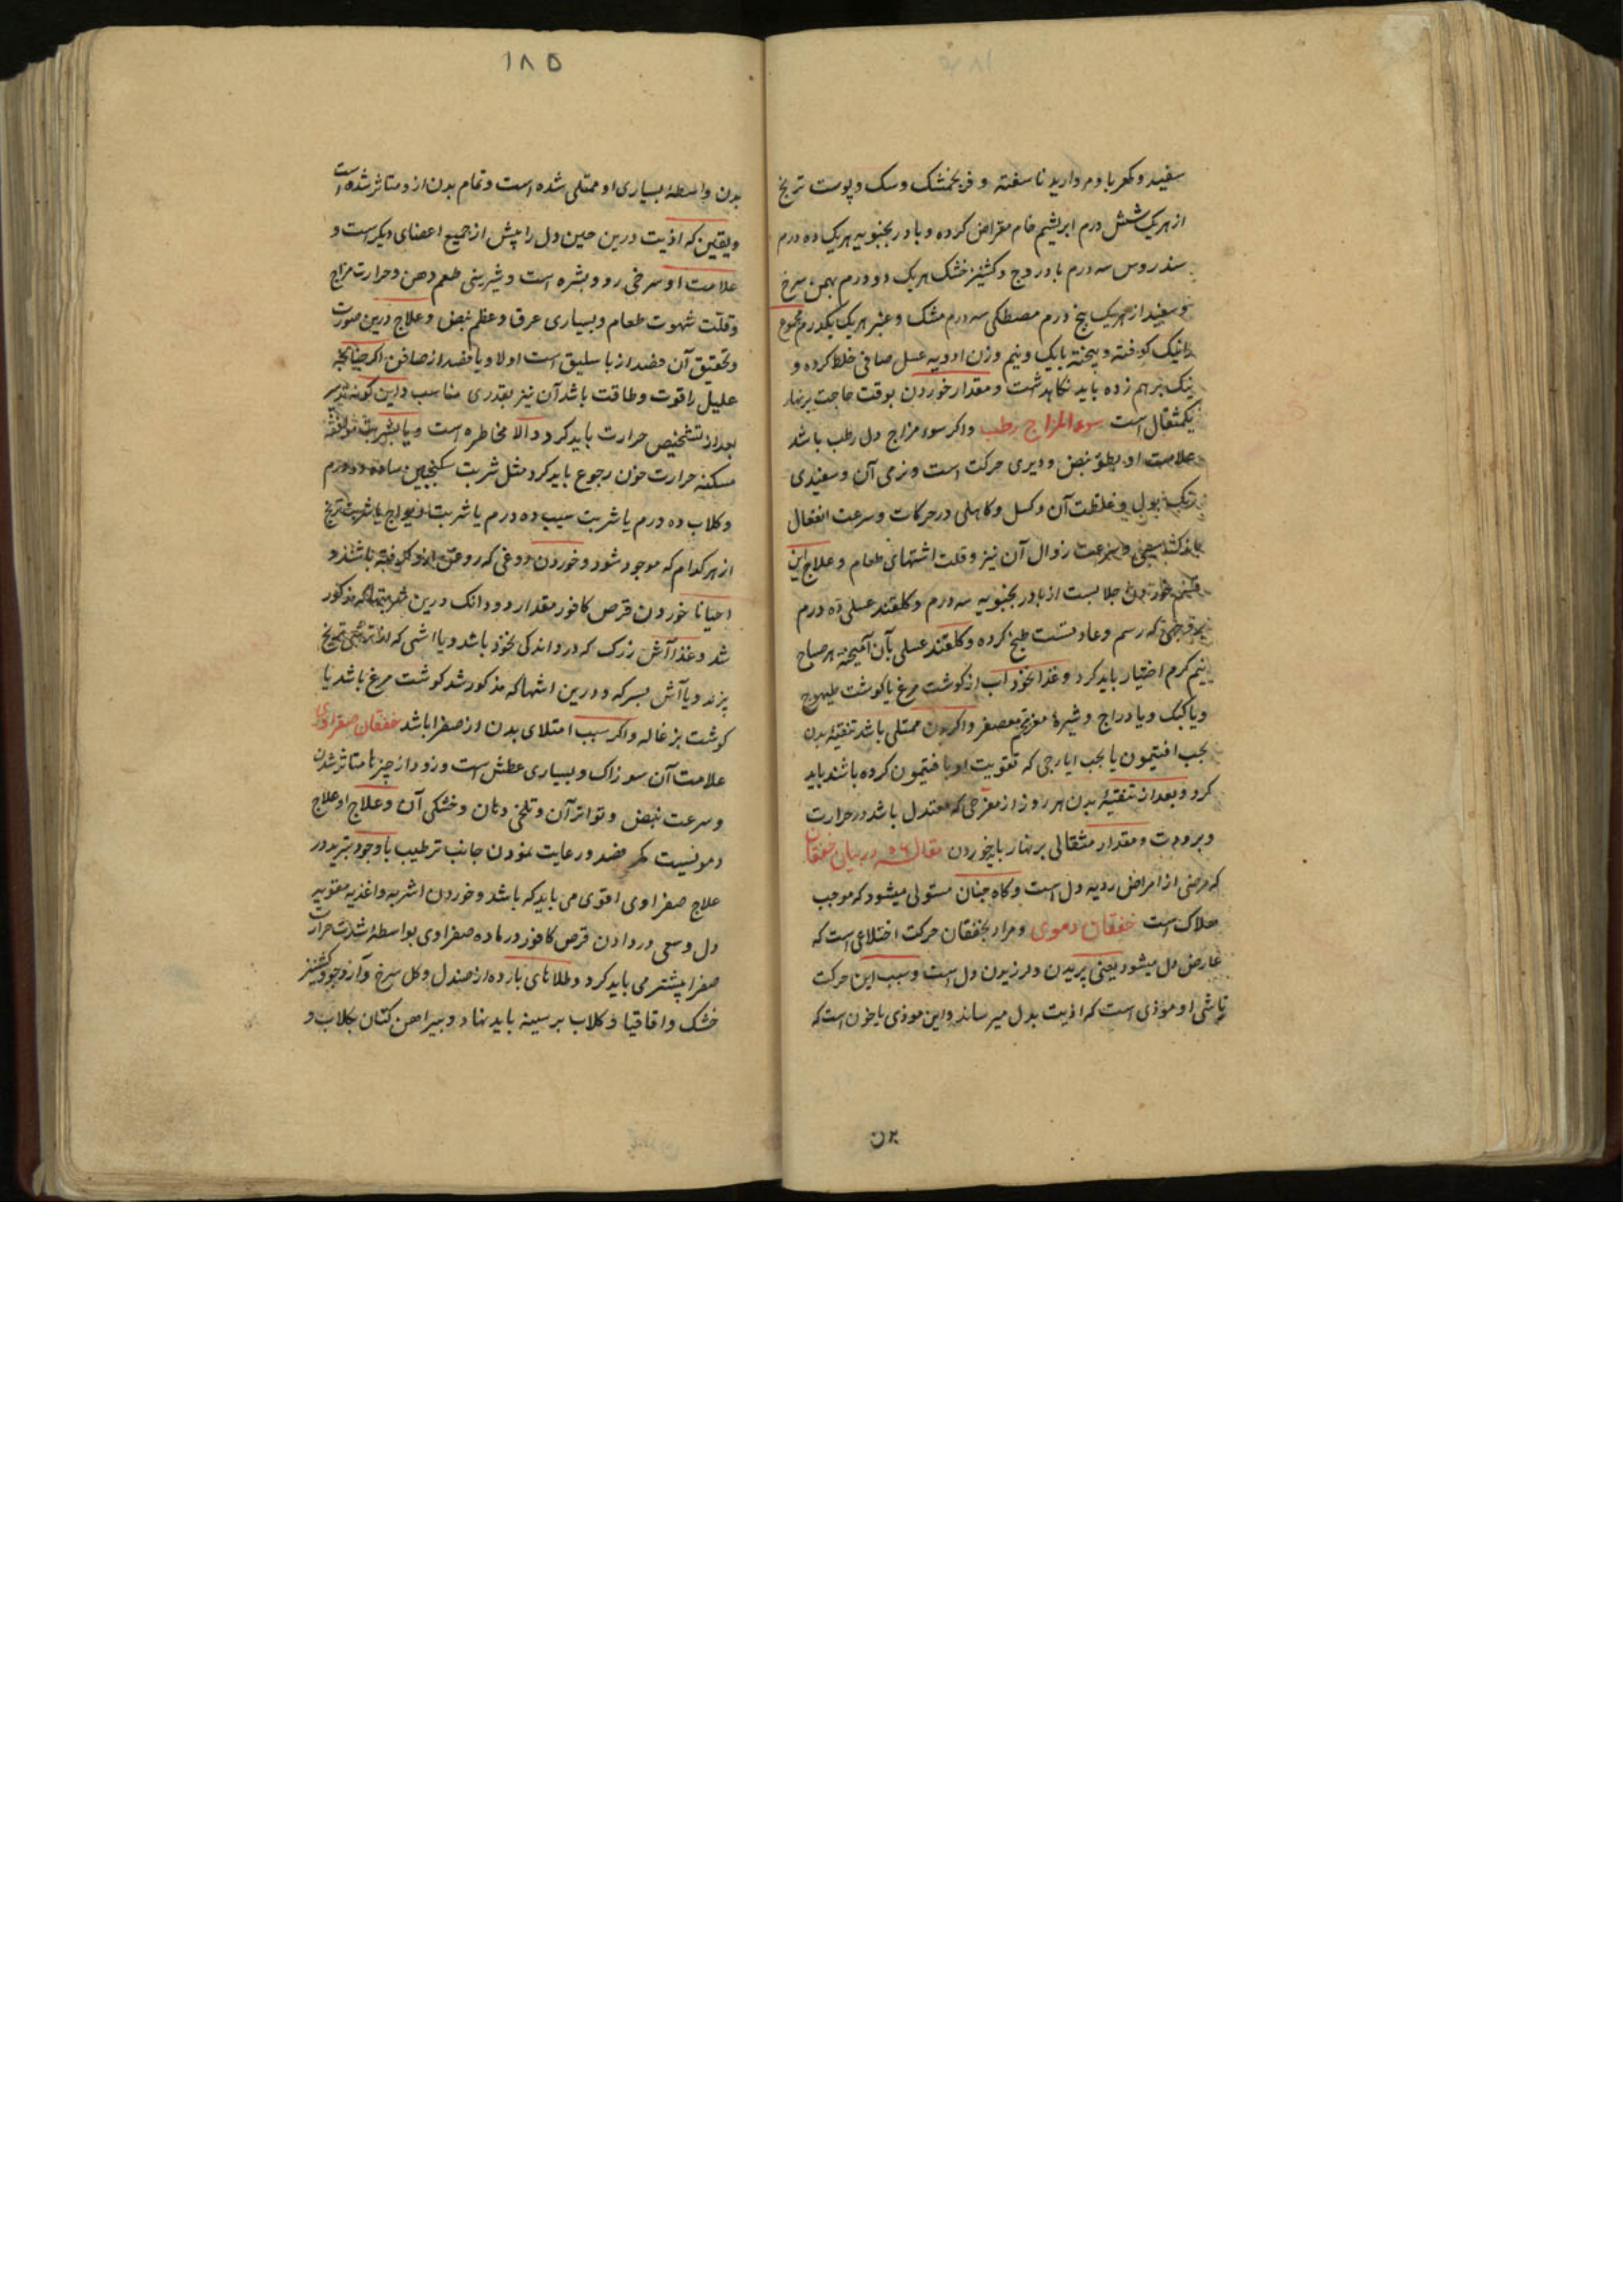 سفید و کهربا و مروارید ناسفته و فرنجمشک و سک و پوست ترنج
از هر یک شش درم ابریشم خام مقراض کرده و بادرنجبویه هر یک ده درم
سندروس سه درم بادروج و کشنیز خشک هر یک دو درم بهمن سرخ
و سفید از هر یک پنج درم مصطکی سه درم مشک و عنبر هر یک یکدرم مجموع
رانیک کوفته و بیخته بایک و نیم وزن ادویه عسل صافی خلط کرده و
نیک بر هم زده باید نکاهداشت و مقدار خوردن بوقت حاجت بر نهار
یکمثقال است سوء المزاج رطب و اکر سوء مزاج دل رطب باشد
علامت او بطؤ نبض و دیری حرکت است و نرمی آن و سفیدی
بول و غلظت آن و کسل و کاهلی در حرکات و سرعت انفعال
و سرعت زوال آن نیز و قلت اشتهای طعام و علاج این
خوردن جلابست از بادرنجبویه سه درم و کلقند عسلی ده درم
که رسم و عادتست طبخ کرده و کلقند عسلی بآن آمیخته هر صباح
نیم کرم اختیار باید کرد و غذا نخود آب از کوشت مرغ یا کوشت طیهوج
و یا کبک و یا دراج و شیره مغز تخم معصفر و اکر بدن ممتلی باشد تنقیه بدن
بحب افتیمون یا بحب ایارجی که تقویت او با فتیمون کرده باشند باید
کرد و بعد از تنقیه بدن هر روز از مفرحی که معتدل باشد در حرارت
و برودت و مقدار مثقالی بر نهار باید خوردن مقاله در بیان خفقان
که مرضی از امراض ردیه دل است و کاه چنان مستولی میشود که موجب
هلاک است خفقان دموی و مراد بخفقان حرکت اختلاجی است که
عارض دل میشود یعنی پریدن و لرزیدن دل است و سبب این حرکت
ناشی او موذی است که اذیت بدل میرساند و این موذی یا خون است که
۱۸۵
بدن واسطه بسیاری او ممتلی شده است و تمام بدن ازو متاثر شده است
و یقین که اذیت درین حین دل را پیش از جمیع اعضای دیکر است و
علامت او سرخی رو و بشره است و شیرینی طعم دهن و حرارت مزاج
و قلت شهوت طعام و بسیاری عرق و عظم نبض و علاج درین صورت
و تحقیق آن فصد از باسلیق است اولا و یا فصد از صافن اکر چنانچه
علیل را قوت و طاقت باشد آن نیز بقدری مناسب و این کونه تدبیر
بعد از تشخیص حرارت باید کرد و الا مخاطره است و یا بشربت
مسکنه حرارت خون رجوع باید کرد مثل شربت سکنجبین ساده ده درم
و کلاب ده درم یا شربت سیب ده درم یا شربت یا شربت ترنج
از هر کدام که موجود شود و خوردن دوغی که روغن ازو کرفته باشند و
احیانا خوردن قرص کافور مقدار دو دانک درین مذکور
شد و غذا آش زرک که درو اندکی نخود باشد و یا آشی که از ترنج
پزند و یا آش سرکه و درین اشها که مذکور شد کوشت مرغ باشد یا
کوشت بزغاله و اکر سبب امتلای بدن از صفرا باشد خفقان صفراوی
علامت آن سوزاک و بسیاری عطش است و زود از چیزها متاثر شدن
و سرعت نبض و تواتر آن و تلخی دهان و خشکی آن و علاج او علاج
دمویست کر فصد و رعایت نمودن جانب ترطیب با وجود تبرید در
علاج صفراوی اقوی می باید که باشد و خوردن اشربه و اغذیه مقویه
دل و سعی در دادن قرص کافور در ماده صفراوی بواسطه شدت حرارت
صفرا پیشتر می باید کرد و طلاهای بارده از صندل و کل سرخ و آرد جو و کشنیز
خشک و اقاقیا و کلاب بر سینه باید نهاد و پیراهن کتان بکلاب و